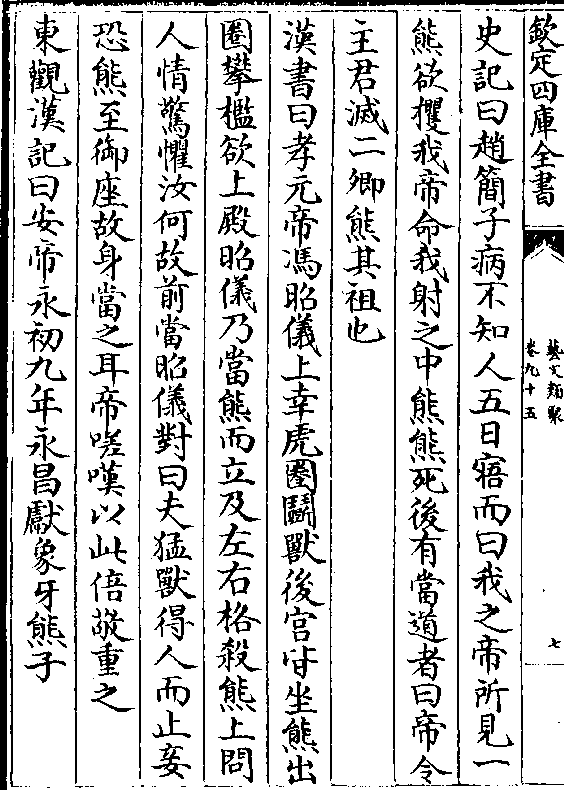 欽定四庫全書
藝文類聚
卷九十五
七
史記曰趙簡子病不知人五日寤而曰我之帝所見一
熊欲攫我帝命我射之中熊熊死後有當道者曰帝令
主君滅二卿熊其祖也
漢書曰孝元帝馮昭儀上幸虎圈鬭獸後宮皆坐熊出
圈攀檻欲上殿昭儀乃當熊而立及左右格殺熊上問
人情驚懼汝何故前當昭儀對曰夫猛獸得人而止妾
恐熊至御座故身當之耳帝嗟嘆以此倍敬重之
東觀漢記曰安帝永初九年永昌獻象牙熊子